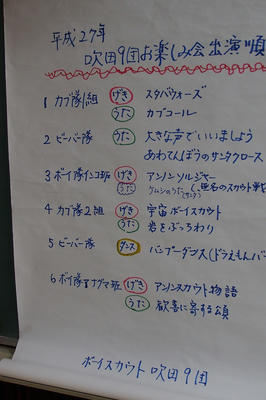 平成27年
吹田9団お楽しみ会出演順
1 カブ隊1組 げき スタバウォーズ
うた カブコール
2 ビーバー隊 うた 大きな声でいいましょう
あわてんぼうのサンタクロース
3 ボーイ隊インコ班 げき アンノンソルジャー
うた ケムシのうた
4 カブ隊2組 げき 宇宙ボーイスカウト
うた 岩をぶっちわり
5 ビーバー隊 ダンス バンブーダンス(ドラえもんバ
6 ボイ隊アナグマ班 げき アンノンスカウト物語
うた 歓喜に寄する頌
ボーイスカウト 吹田9団